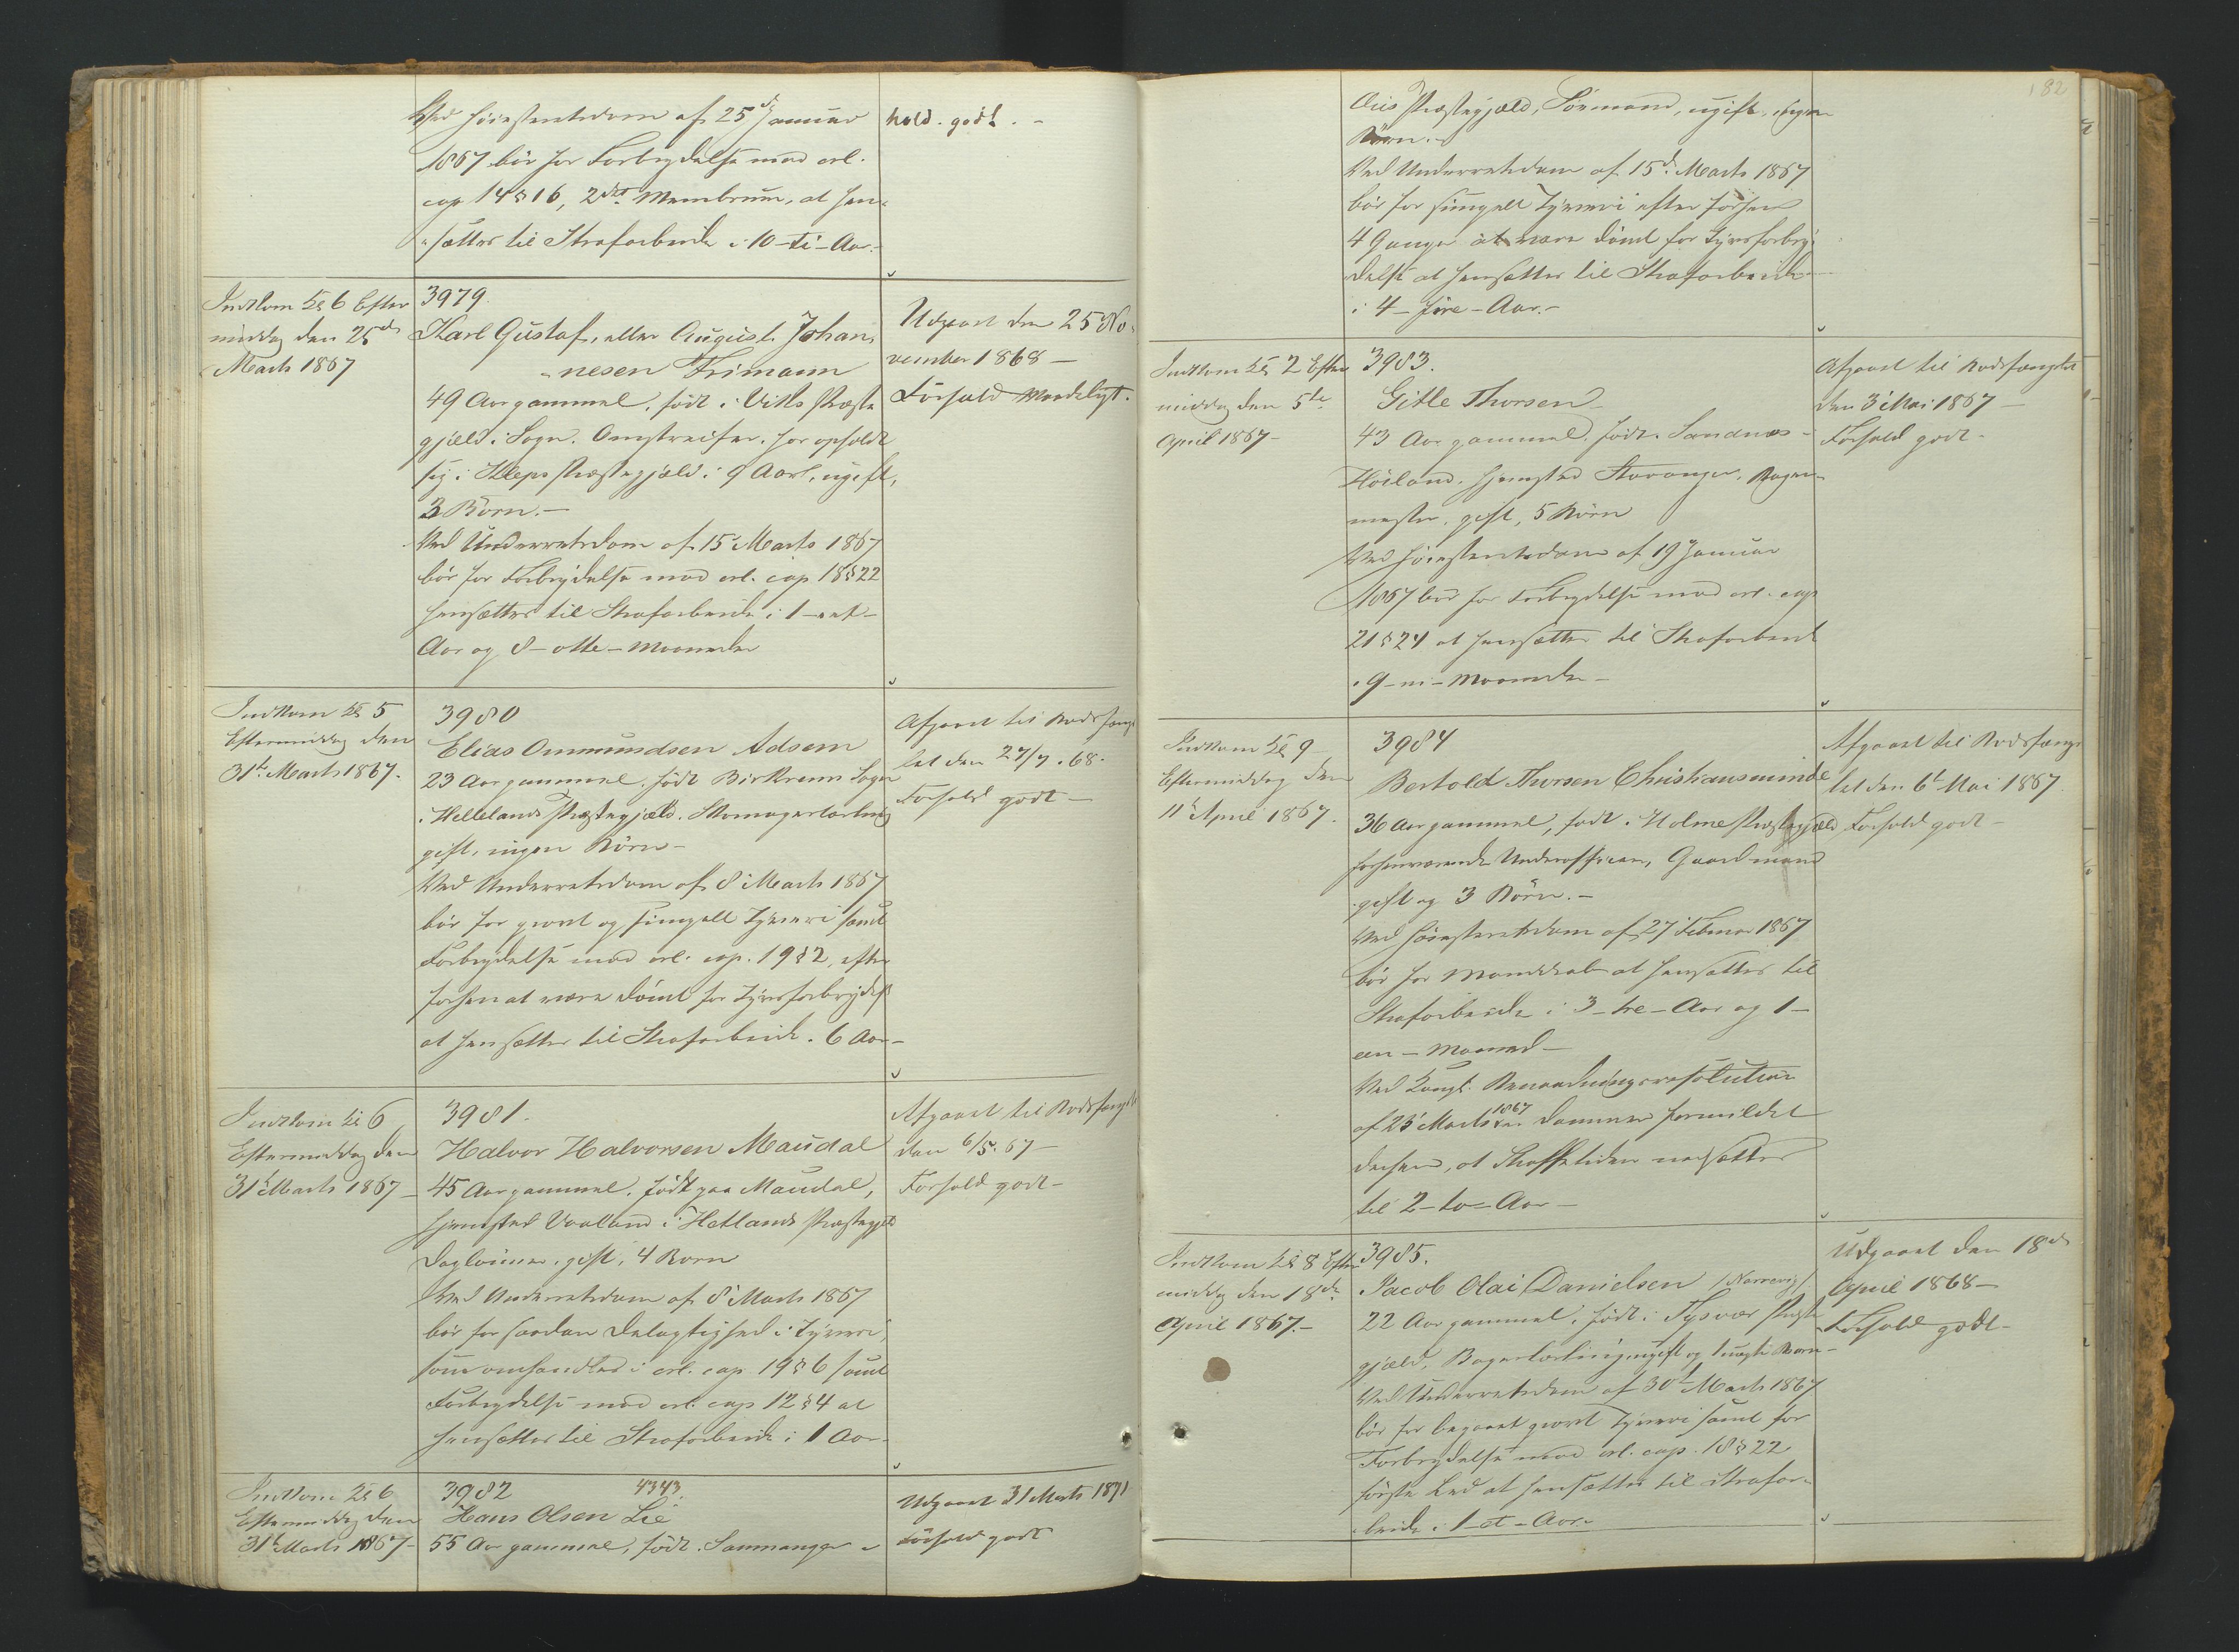 Ved Høiesteretsdom af 25d Januar
1867 bør for Forbrydelse mod crl.
cap 14 § 16, 2det Membrum, at hen-
sættes til Strafarbeide i 10 - ti - Aar.
hold. godt. -
Indkom Kl 6 Efter
middag den 25de
Marts 1867
3979.
Karl Gustaf, eller August Johan-
nesen Frimann
49 Aar gammel, født i Viks Præste
gjæld i Sogn. Omstreifer, har opholdt
sig i Kleps Præstegjæld i 9 Aar, ugift,
3 Børn. -
Ved Underretsdom af 15 Marts 1867
bør for Forbrydelse mod crl. cap 18 § 22
hensættes til Strafarbeide i 1 - eet -
Aar og 8 - otte - Maaneder
Udgaaet den 25 No-
vember 1868 -
Forhold Maadeligt.
Indkom Kl 5
Eftermiddag den
31te Marts 1867.
3980
Elias Ommundsen Adsem
23 Aar gammel, født Birkrem Sogn
i Hellelands Præstegjæld. Skomagerlærling
gift, ingen Børn -
Ved Underretsdom af 8 Marts 1867
bør for grovt og simpelt Tyveri samt
Forbrydelse mod crl. cap. 19 § 2, efter
forhen at være dømt for Tyvsforbrydelse
at hensættes til Strafarbeide i 6 Aar -
Afgaaet til Bodsfængs
let den 27/7. 68.
Forhold godt -
Indkom Kl 6
Eftermiddag den
31te Marts 1867 -
3981.
Halvor Halvorsen Maudal
45 Aar gammel, født paa Maudal,
Hjemsted Vaaland i Hetlands Præstegjæld
Dagleiner, gift, 4 Børn
Ved Underretsdom af 8 Marts 1867
bør for saadan Delagtighed i Tyveri,
som omhandles i crl. cap 19 § 6 samt
Forbrydelse mod crl. cap 12 § 4 at
hensættes til Strafarbeide i 1 Aar -
Afgaaet til Bodsfængslet
den 6/5. 67 -
Forhold godt -
Indkom Kl 6
Eftermiddag den
31te Marts 1867 -
3982 4343.
Hans Olsen Lie
55 Aar gammel, født Sammanger
Udgaaet 31 Marts 1871
Forhold godt
182
Præstegjæld, ugift, ingen
Børn. -
Ved Underretsdom af 15d Marts 1867
bør for simpelt Tyveri efter forhen
4 Gange at være dømt for Tyvsforbry-
delse at hensættes til Strafarbeide
i 4 - fire - Aar. -
Indkom Kl 2 Efter
middag den 5te
April 1867 -
3983.
Gitle Thorsen
43 Aar gammel, født Sandnes -
Høiland, Hjemsted Stavanger. Bager-
mester, gift, 5 Børn
Ved Høiesteretsdom af 19 Januar
1867 bør for Forbrydelse mod crl. cap
21 § 24 at hensættes til Strafarbeide
i 9 - ni - Maaneder -
Afgaaet til Bodsfængslet
den 3 Mai 1867 -
Forhold godt -
Indkom Kl 9
Eftermiddag den
11te April 1867.
3984
Bertold Thorsen Christiansminde
36 Aar gammel, født i Holme Præstegjæld
forhenværende Underofficeer, Gaardmand
gift og 3 Børn. -
Ved Høiesteretsdom af 27 Februar 1867
bør for Meened at hensættes til
Strafarbeide i 3 - tre - Aar og 1 -
een - Maaned -
Ved Kongl. Benaadningsresolution
af 23 Marts 1867 er Dommen formildet
derhen, at Straffetiden nedsættes
til 2 - to - Aar -
Afgaaet til Bodsfængs
let den 6te Mai 1867.
Forhold godt -
Indkom Kl 8 Efter
middag den 18de
April 1867. -
3985.
Jacob Olai Danielsen /Narrevig/
22 Aar gammel, født i Tysvær Præste
gjæld, Bagerlærling, ugift og 1 uægte Barn -
Ved Underretsdom af 30te Marts 1867
bør for begaaet grovt Tyveri samt for
Forbrydelse mod crl. cap. 18 § 22
første Led at hensættes til Strafar-
beide i 1 - et - Aar -
Udgaaet den 18de
April 1868 -
Forhold godt -